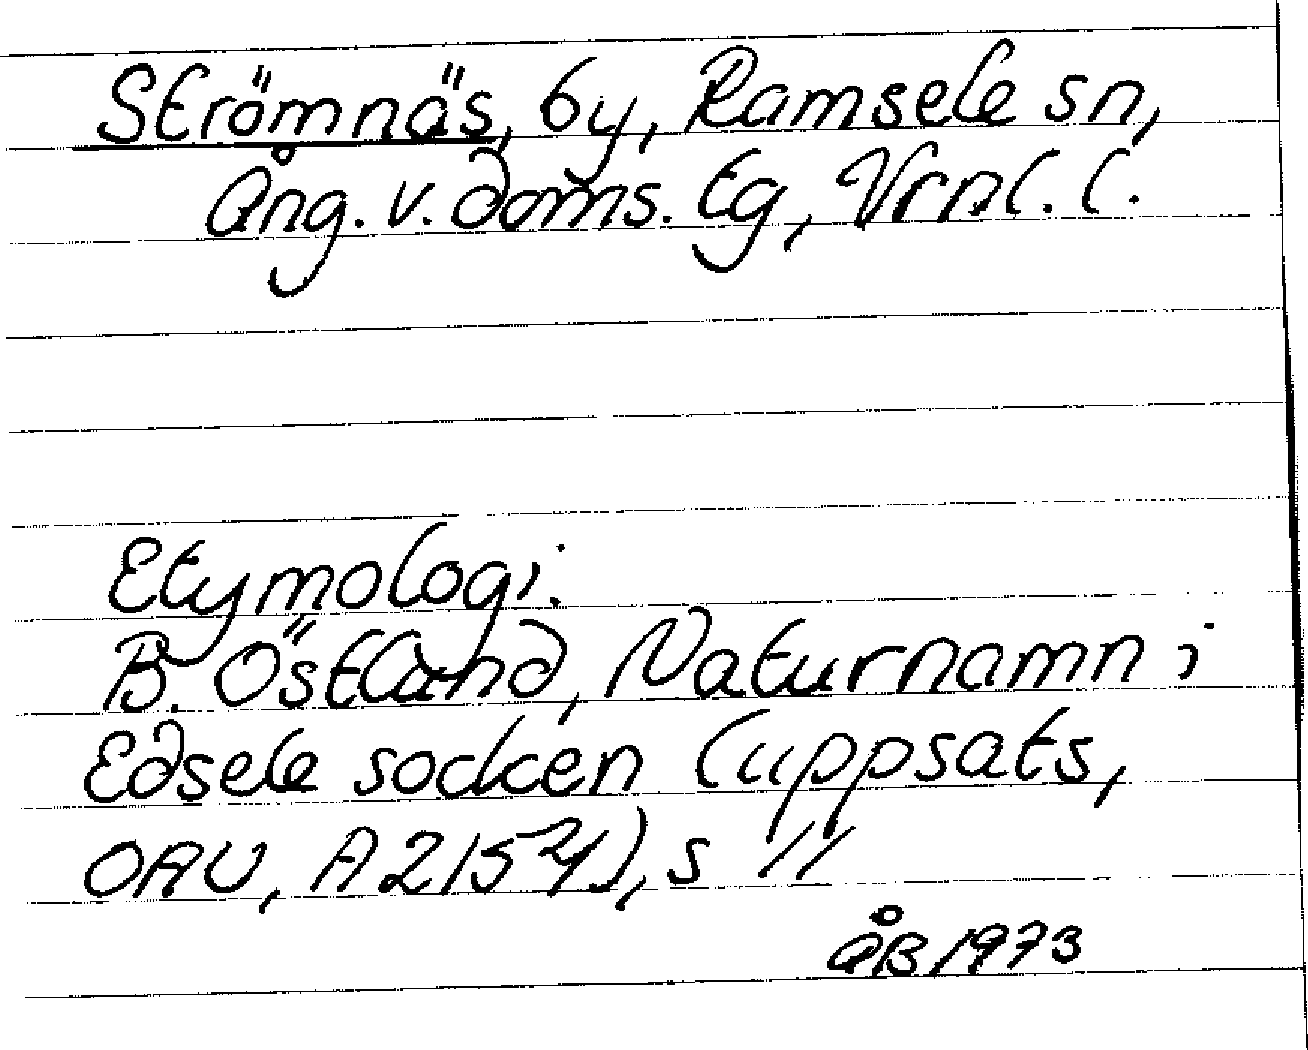 Strömnäs, by, Ramsele sn,
Ång. v. doms. tg, Vrnl. l.
Etymologi:
B. Östland, Naturnamn i
Edsele socken (uppsats,
OAU, A 2154), s 11
ÅB 1973